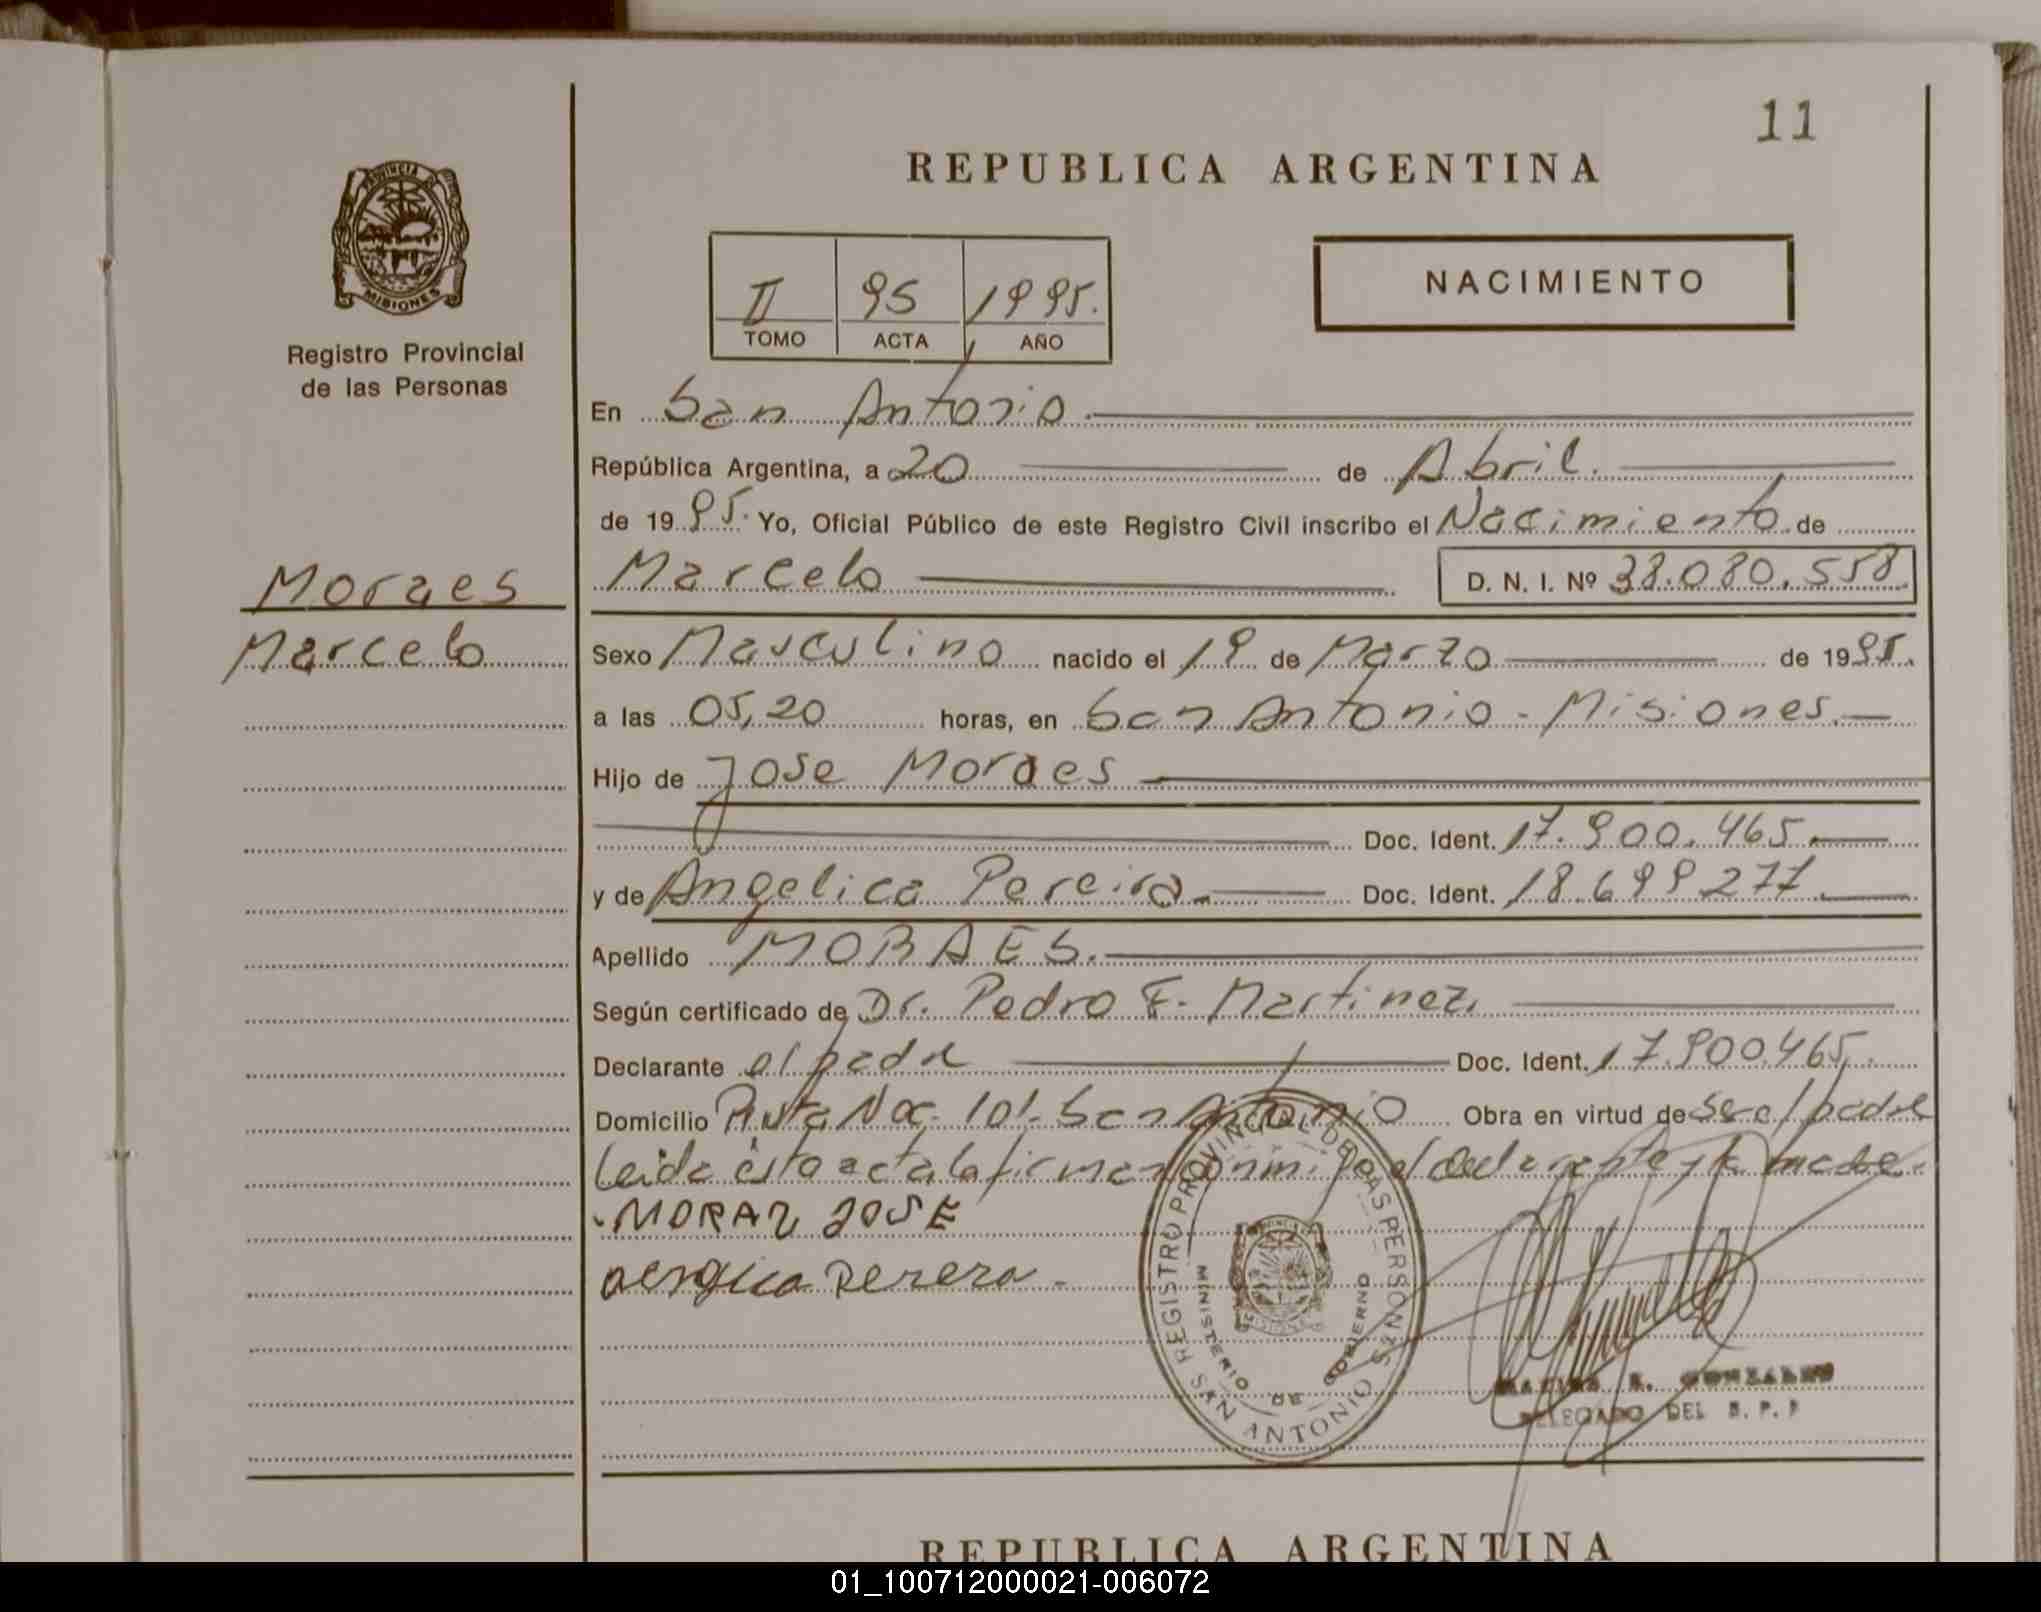 11
REPUBLICA ARGENTINA
PROVINCIA DE
MISIONES
Registro Provincial
de las Personas
NACIMIENTO
II 95 1995.
TOMO ACTA AÑO
En San Antonio.
República Argentina, a 20 de Abril.
de 1995. Yo, Oficial Público de este Registro Civil inscribo el Nacimiento de
Moraes
Marcelo D. N. I. Nº 38.080.558
Marcelo
Sexo Masculino nacido el 19 de Marzo de 1995.
a las 05,20 horas, en San Antonio - Misiones.
Hijo de Jose Moraes
Doc. Ident. 17.900.465.
y de Angelica Pereira. Doc. Ident. 18.699.277.
Apellido MORAES.
Según certificado de Dr. Pedro F. Martinez
Declarante el padre Doc. Ident. 17.900.465.
Domicilio Punta Nac. 101. San Antonio Obra en virtud de ser el padre
leida esta acta la firman conmigo el declarante y la madre.
MORAZ JOSE
Perera
REGISTRO PROVINCIAL DE LAS PERSONAS
MINISTERIO DE GOBIERNO
SAN ANTONIO
GONZALEZ
DELEGADO DEL
REPUBLICA ARGENTINA
01_100712000021-006072